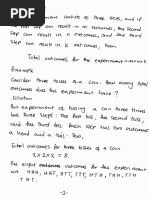 the first step can result in m outcomes, the second
step can result in n outcomes, and the third
step can result in k outcomes, then
Total outcomes for the experiment = m×n×k
Example
Consider three tosses of a coin. How many total
outcomes does this experiment have?
Solution
This experiment of tossing a coin three times
has three steps: The first toss, the second toss,
and the third toss. Then each step has two outcomes
a head and a tail. Thus,
Total outcomes for three tosses of a coin
2 × 2 × 2 = 8.
The eight outcomes for this experiment
are HHH, HHT, HTT, TTT, HTH, THH, TTH
THT.
-2-